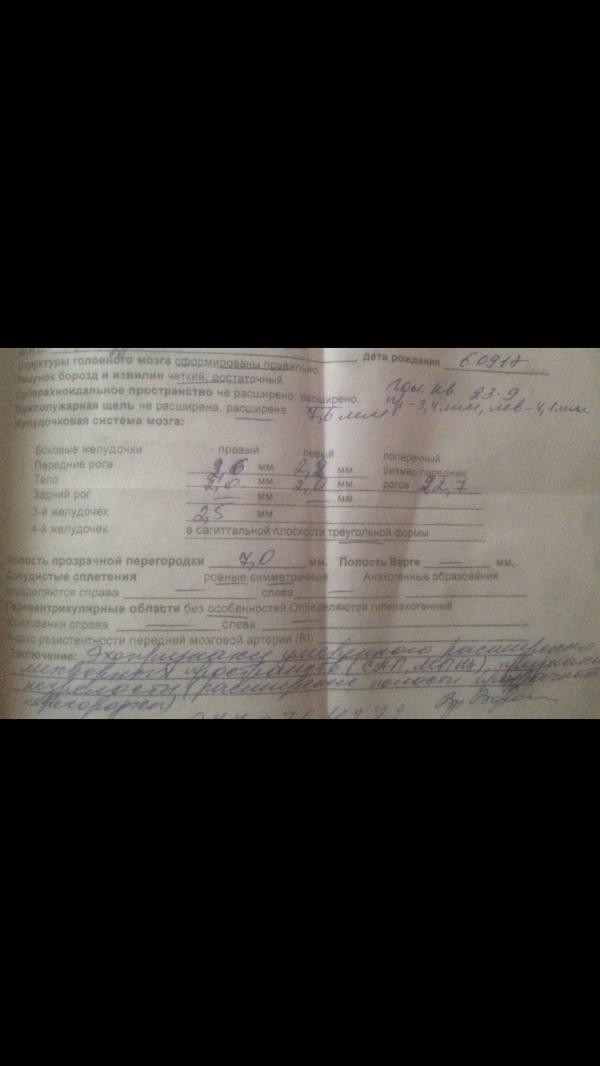 Структуры головного мозга сформированы правильно дата рождения 60917
Рисунок борозд и извилин четкий, достаточный
Субарахноидальное пространство не расширено, расширено
пр-3,4мм, лев-4,1мм
Межполушарная щель не расширена, расширена 7,6 мм
Желудочковая система мозга:
Боковые желудочки правый левый поперечный
Передние рога 2,6 мм. 2,2 мм размер передних
Тело 2,0 мм. 2,0 мм. рогов 22,7
Задний рог — мм. — мм.
3-й желудочек 2,5 мм.
4-й желудочек в сагиттальной плоскости треугольной формы
Полость прозрачной перегородки 7,0 мм. Полость Верге — мм.
Сосудистые сплетения ровные симметричные Анэхогенные образования
определяются справа — слева —
Перивентрикулярные области без особенностей Определяются гиперэхогенные
образования справа — слева —
Индекс резистентности передней мозговой артерии (RI)
Заключение: Эхопризнаки умеренного расширения
ликворных пространств (САП, МПЩ), признаки
незрелости (расширение полости прозрачной
перегородки)